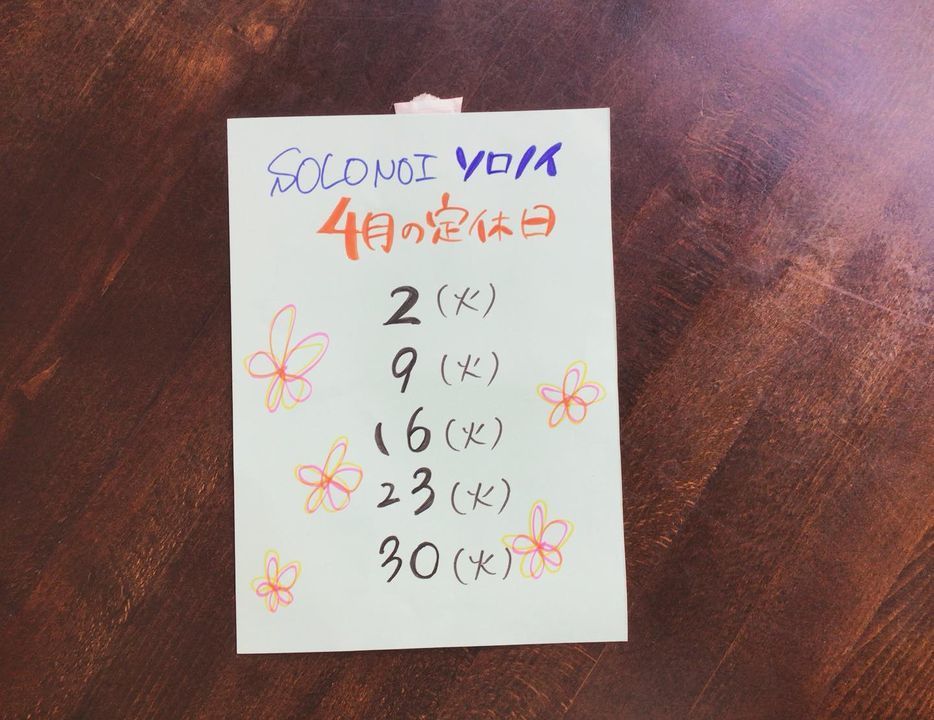 SOLONOI ソロノイ
4月の定休日
2(火)
9(火)
16(火)
23(火)
30(火)